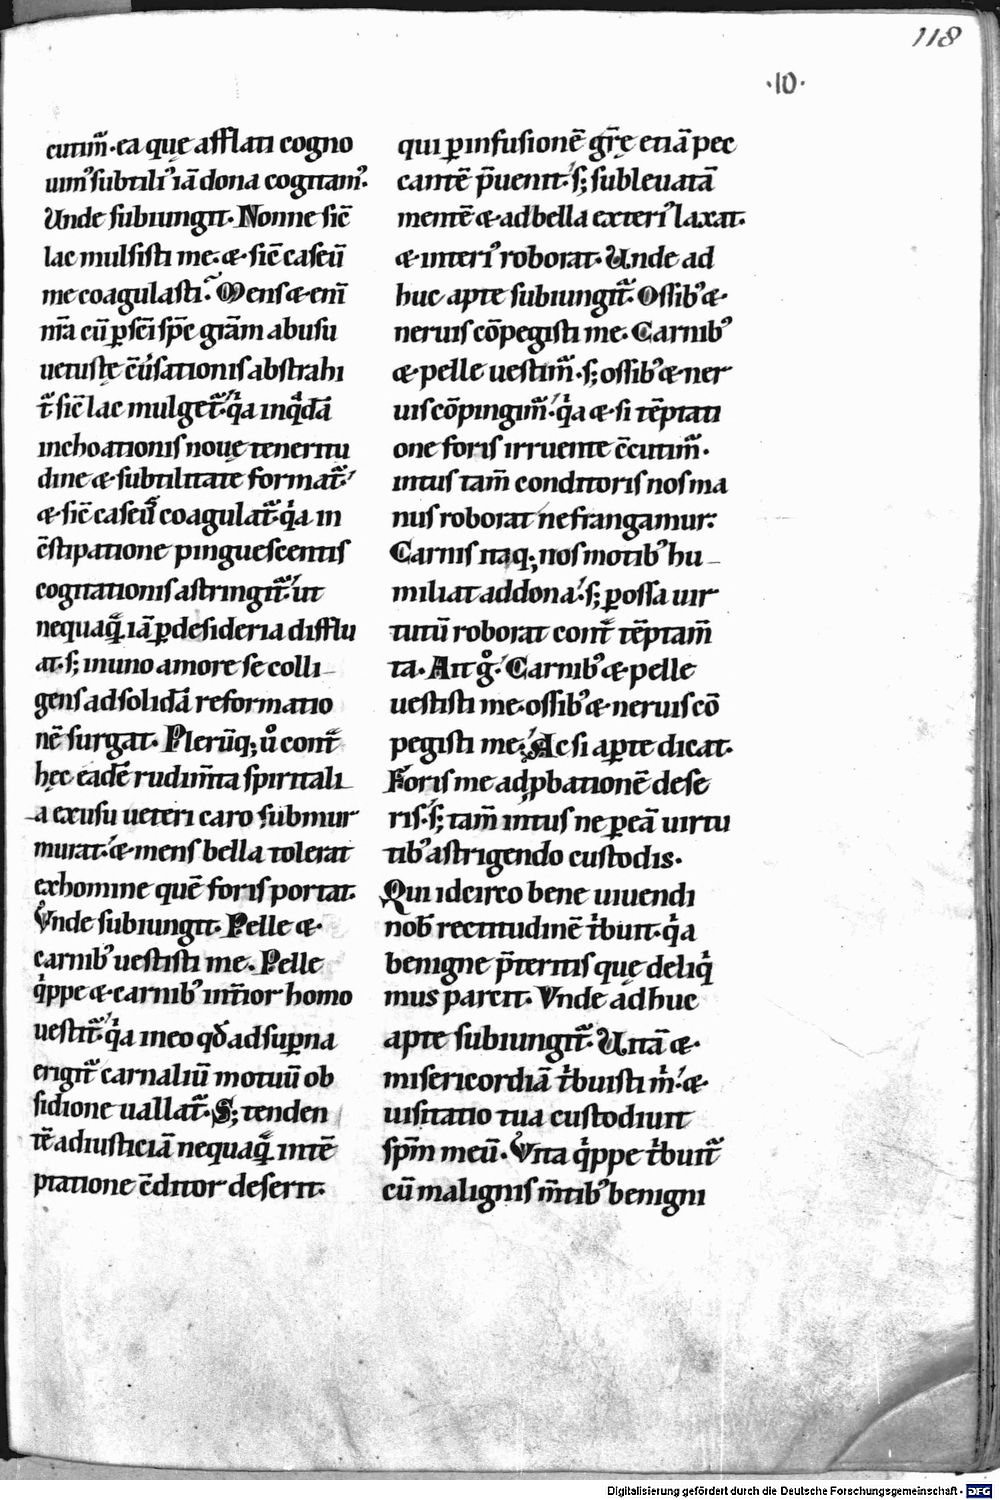 118
·10·
cutim̄·ea quę afflati cogno
uim᾽ subtili᾽ iā dona cogitam᾽.
Unde subiungit. Nonne sic̄
lac mulsisti me. æ· sic̄ caseū
me coagulasti. Mens æeni
nr̄a cū p̱ sc̄i sp̄c gr̄am abusu
uetustę c̄u᾽sationis abstrahi
t᷑ sic̄ lac mulget᷑. qͥa inqͣdā
inchoationis nouę teneritu
dine æ· subtilitate format᷑.
æ· sic̄ caseū coagulat᷑. qͥa in
c̄stipatione pinguescentis
cogitationis astringit᷑. ut
nequaqͣ iā p̱desideria difflu
at. s; in uno amore se colli
gens ad solidā reformatio
nē surgat. Plerūq; uͦ cont᷑
hęc eadē rudim̄ta spiritali
a exusu ueteri caro submur
murat. æ mens bella tolerat
exhomine quē foris portat.
Vnde subiungit. Pelle æ·
carnib᾽ uestisti me. Pelle
qͥppe æ· carnib᾽ int̄ior homo
uestit᷑. qͥa ineo qđ adsup̱na
erigit᷑ carnaliū motuū ob
sidione uallat᷑. S; tenden
tē adiusticiā nequaqͣ intē
ptatione c̄ditor deserit.
qui p̱infusionē gr̄ę etiā pec
cantē p̄uenit. s; subleuatā
mentē æ· adbella exteri᾽ laxat.
æ· interi᾽ roborat. Unde ad
huc apte subiungit᷑. Ossib᾽ æ·
neruis cōpegisti me. Carnib᾽
æ· pelle uestim᷑. s; ossib᾽ æ ner
uis cōpingim᷑. qͥa æ· si tēptati
one foris irruente c̄cutim᷑.
intus tam̄ conditoris nos ma
nus roborat ne frangamur.
Carnis itaq; nos motib᾽ hu
miliat addona. s; p̱ ossa uir
tutū roborat cont᷑ tēptam̄
ta. Ait gͦ. Carnib᾽ æ· pelle
uestisti me. ossib᾽ æ· neruis cō
pegisti me. Ac si ap̱te dicat.
Foris me adꝓbationē dese
ris. s; tam̄ intus ne p̱eā uirtu
tib᾽ astrigendo custodis.
Qui idcirco bene uiuendi
nob̄ rectitudinē tͥbuit. qͥa
benigne p̄teritis quę deliqͥ
mus parcit. Vnde adhuc
apte subiungit᷑. Uitā æ·
misericordiā tͥbuisti m̄. æ·
uisitatio tua custodiuit
sp̄m meū. Vita qͥppe tͥbuit᷑
cū malignis m̄tib᾽ benigni
Digitalisierung gefördert durch die Deutsche Forschungsgemeinschaft · DFG